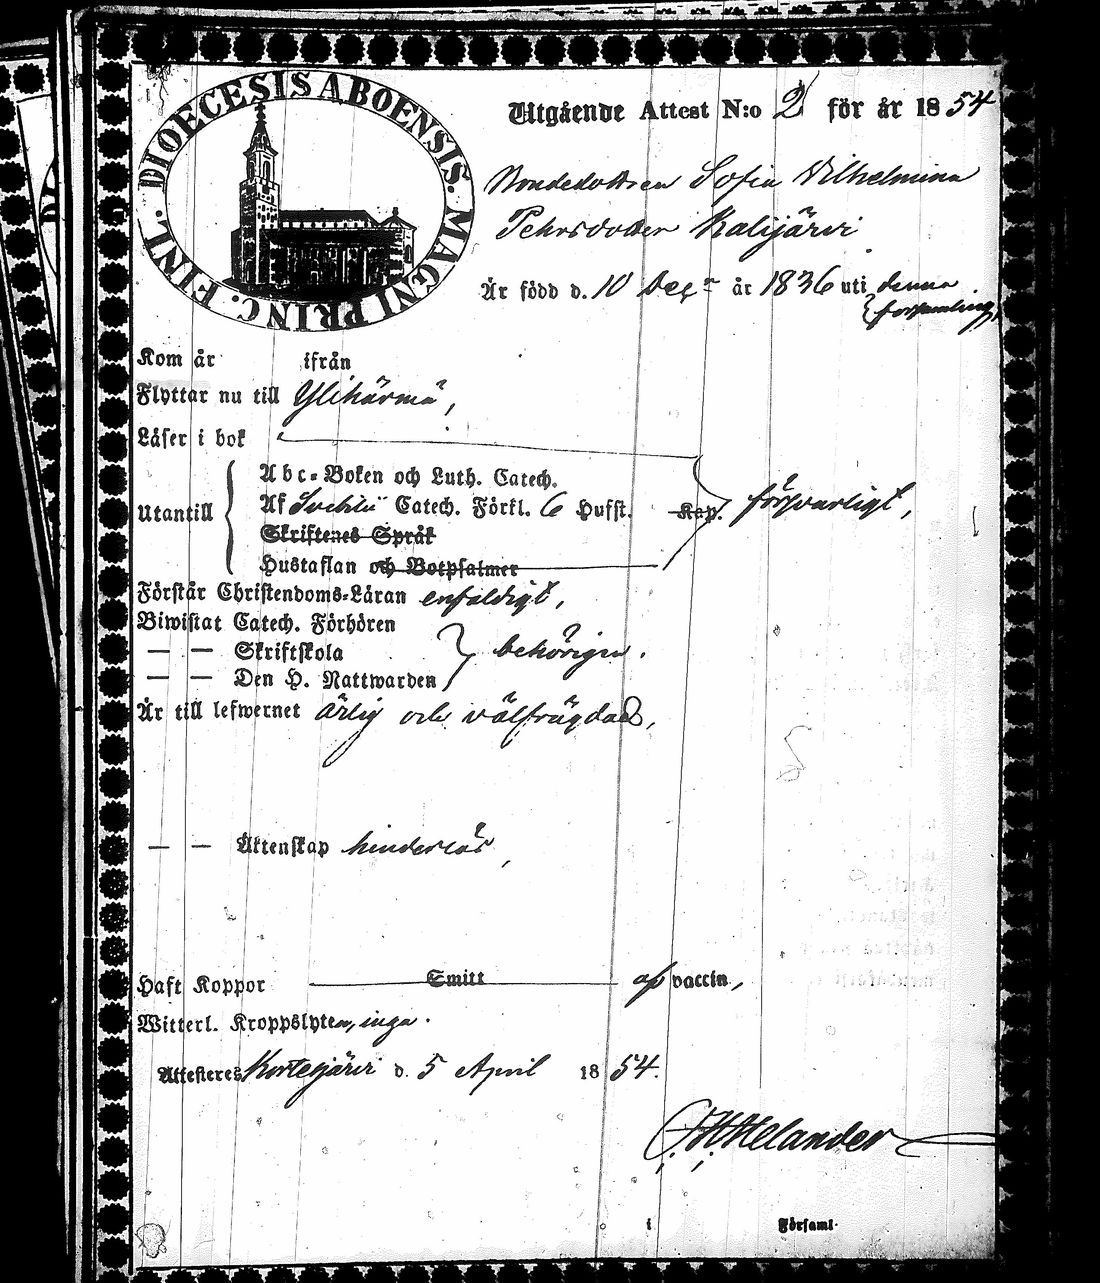 DIOECESIS ABOENSIS. MAGNI PRINC. FINL.
Utgående Attest N:o 2 för år 1854
Bondedottren Sofia Vilhelmina
Pehrsdotter Kalijärvi
Är född d. 10 Dec:r år 1836 uti denna
församling,
Kom år ifrån
Flyttar nu till Ylihärmä,
Läser i bok
Utantill
Abc-Boken och Luth. Catech.
Af Svebilii Catech. Förkl. 6 Hufst. Kap. försvarligt,
Skriftenes Språk
Hustaflan och Botpsalmer
Förstår Christendoms-Läran enfaldigt,
Biwistat Catech. Förhören
— — Skriftskola behörigen.
— — Den H. Nattwarden
Är till lefwernet ärlig och välfrägdad,
— — Äktenskap hinderlös,
Haft Koppor Smitt af vaccin,
Witterl. Kroppslyten, inga.
Attesteres Kortesjärvi d. 5 April 1854.
Helander
i Församl.